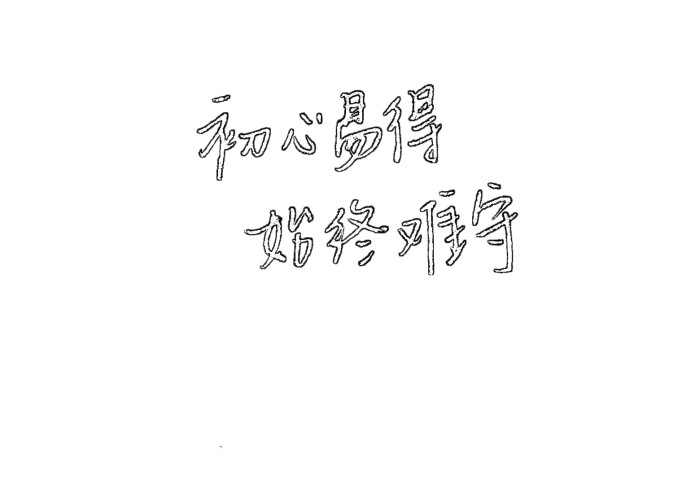 初心易得
始终难守